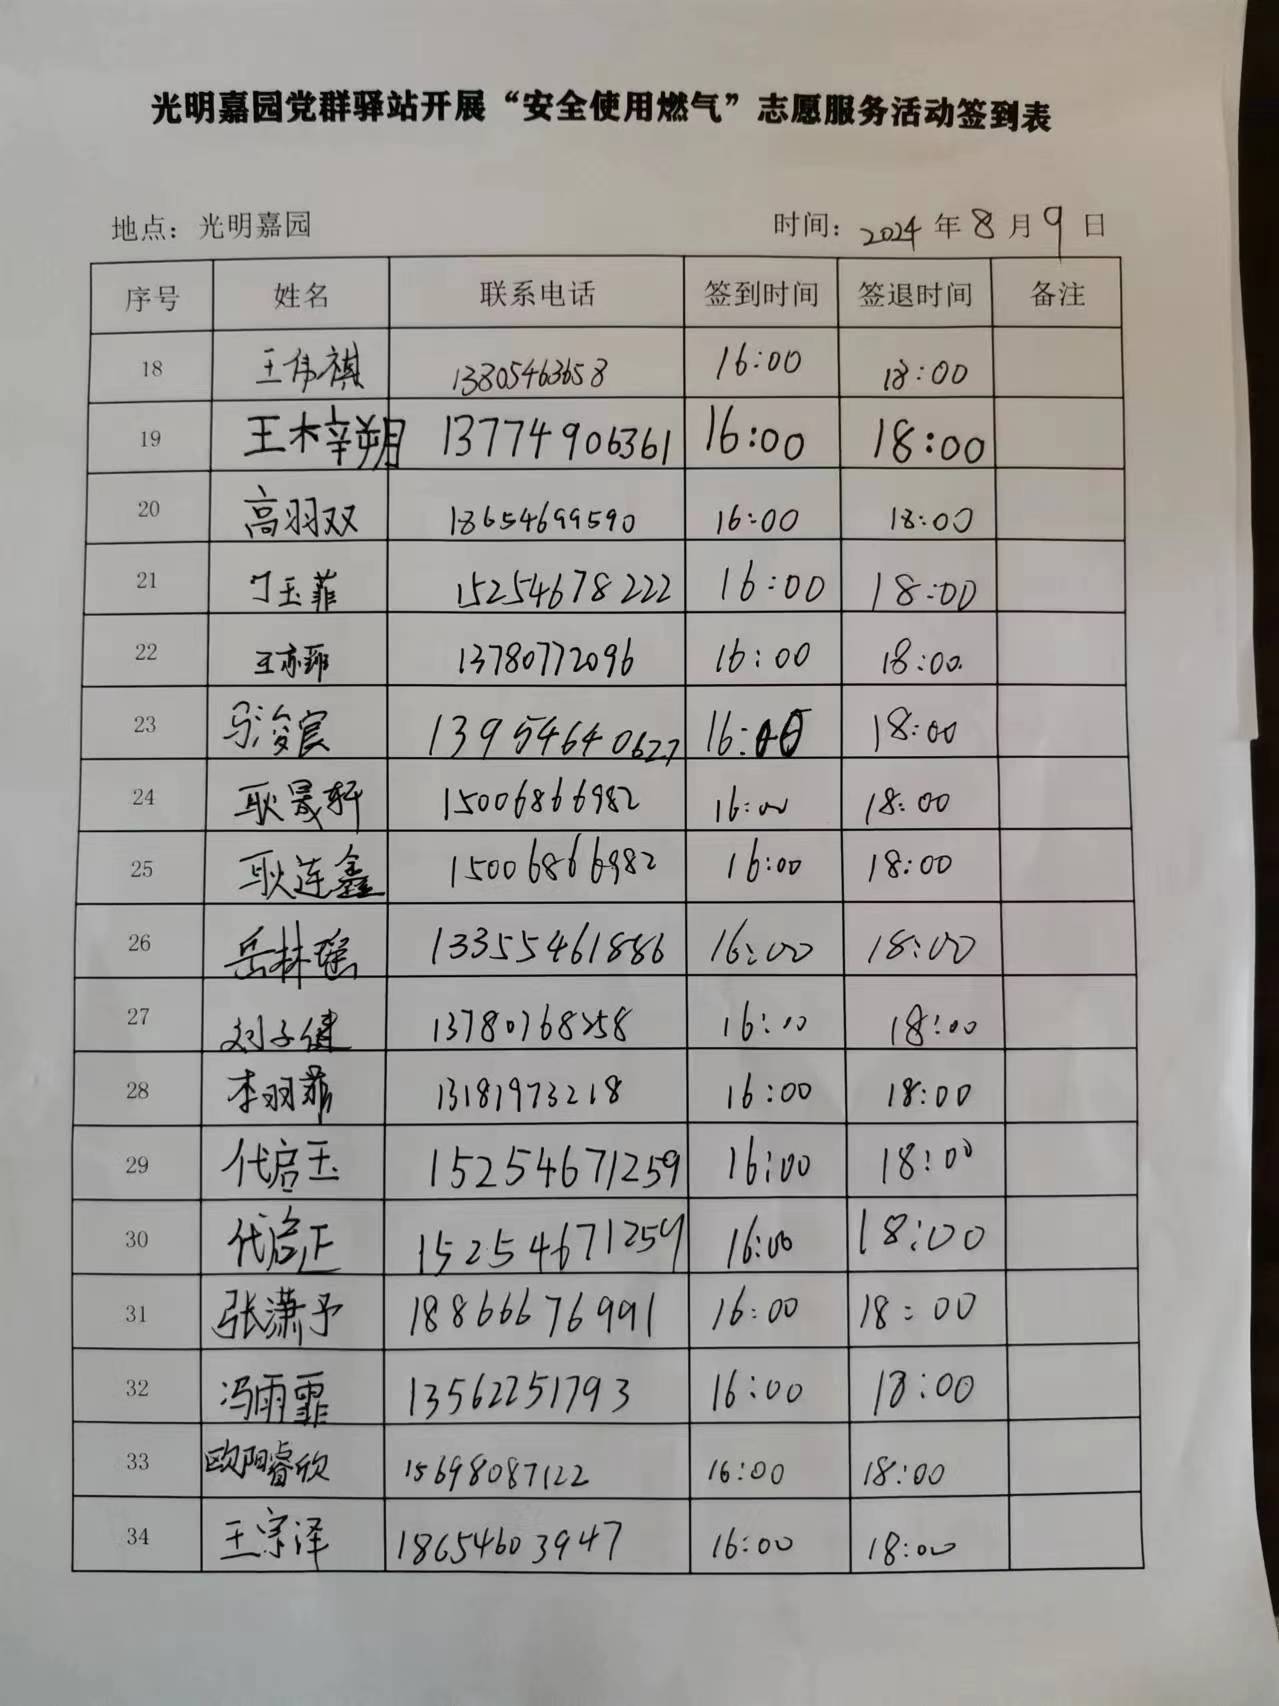 光明嘉园党群驿站开展“安全使用燃气”志愿服务活动签到表
地点：光明嘉园 时间：2024年8月9日
序号 姓名 联系电话 签到时间 签退时间 备注
18 王伟祺 13805463658 16:00 18:00
19 王梓朔 13774906361 16:00 18:00
20 高羽双 18654699590 16:00 18:00
21 丁玉菲 15254678222 16:00 18:00
22 王亦菲 13780772096 16:00 18:00
23 马浚宸 13954640627 16:00 18:00
24 耿晟轩 15006866982 16:00 18:00
25 耿连鑫 15006866982 16:00 18:00
26 岳林瑶 13355461886 16:00 18:00
27 刘子健 13780768258 16:00 18:00
28 李羽菲 13181973218 16:00 18:00
29 代启玉 15254671259 16:00 18:00
30 代启正 15254671259 16:00 18:00
31 张潇予 18866676991 16:00 18:00
32 冯雨霏 13562251793 16:00 18:00
33 欧阳睿欣 15698087122 16:00 18:00
34 王宗泽 18654603947 16:00 18:00